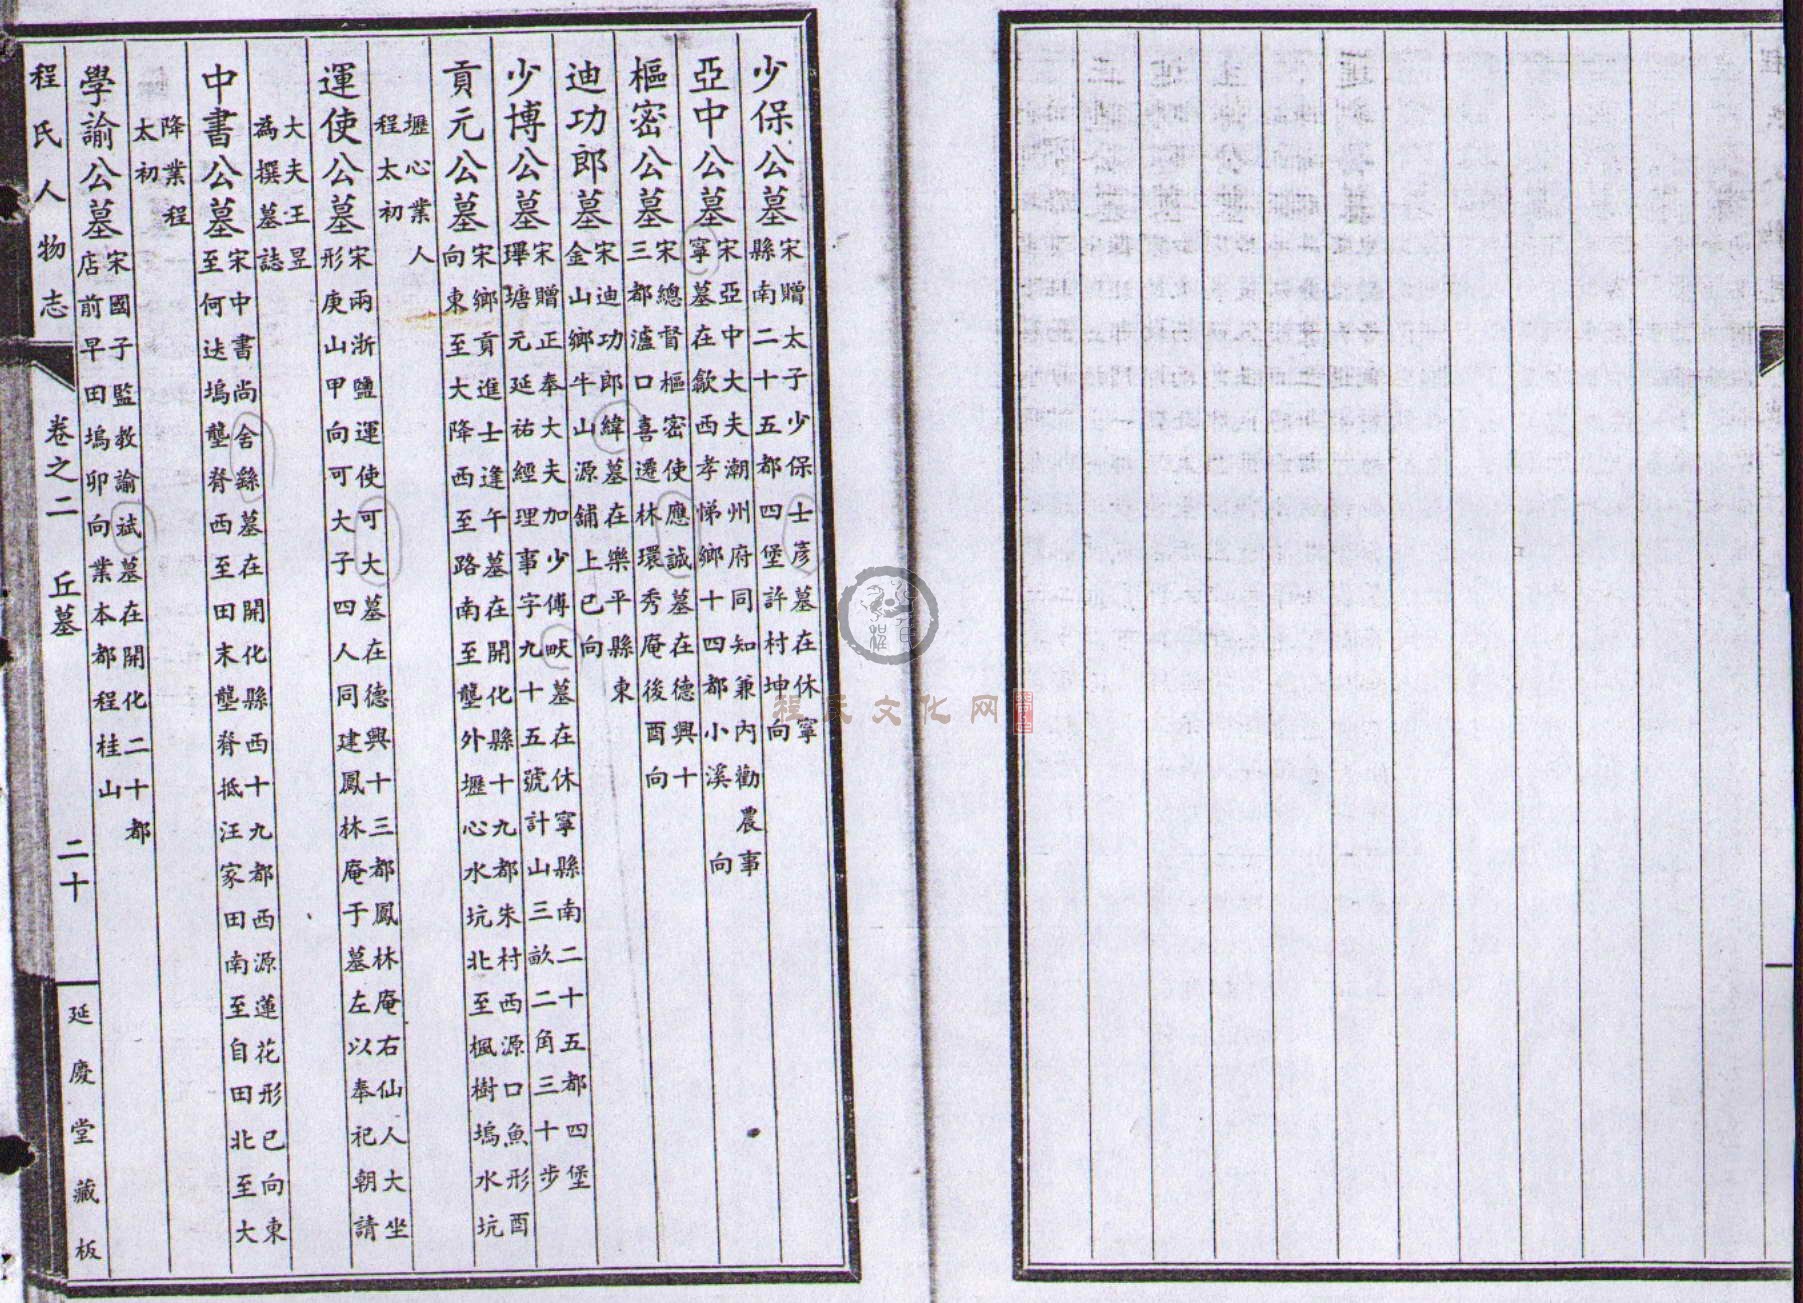 少保公墓宋贈太子少保士彥墓在休寧
縣南二十五都四堡許村坤向
亞中公墓宋亞中大夫潮州府同知兼內勸農事
寧墓在歙西孝悌鄉十四都小溪向
樞密公墓宋總督樞密使應誠墓在德興十
三都瀘口喜遷林環秀庵後酉向
迪功郎墓宋迪功郎緯墓在樂平縣東
金山鄉牛山源鋪上巳向
少博公墓宋贈正奉大夫加少傅畎墓在休寧縣南二十五都四堡
瑻塘元延祐經理事字九十五號計山三畝二角三十步
貢元公墓宋鄉貢進士逢午墓在開化縣十九都朱村西源口魚形酉
向東至大降西至路南至壟外壢心水坑北至楓樹塢水坑
壢心業人
程太初
運使公墓宋兩浙鹽運使可大墓在德興十三都鳳林庵右仙人大坐
形庚山甲向可大子四人同建鳳林庵于墓左以奉祀朝請
大夫王昱
為撰墓誌
中書公墓宋中書尚舍繇墓在開化縣西十九都西源蓮花形巳向東
至何迖塢壟脊西至田末壟脊抵汪家田南至自田北至大
降業程
太初
學諭公墓宋國子監教諭斌墓在開化二十都
店前早田塢卯向業本都程桂山
程氏人物志 卷之二 丘墓 二十 延慶堂藏板
程氏文化网